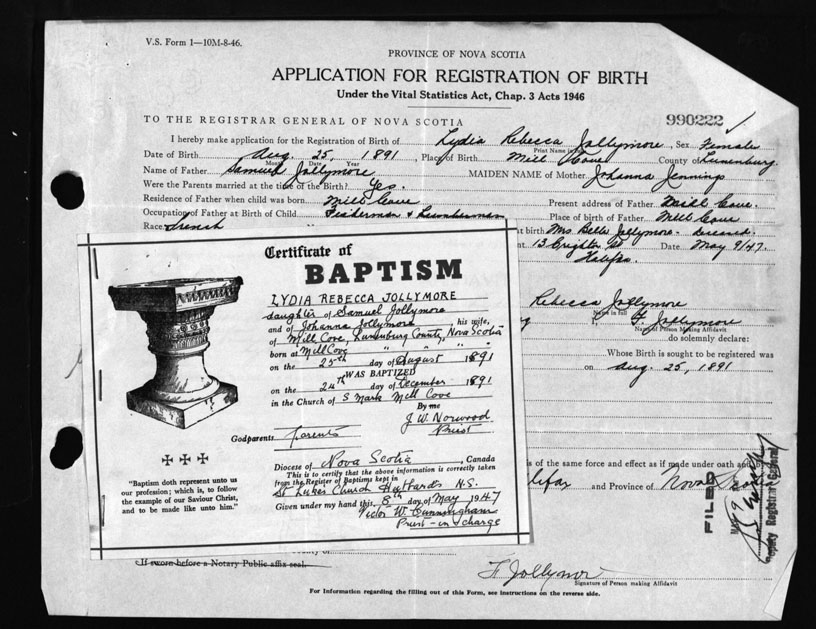 V.S. Form 1—10M-8-46.
PROVINCE OF NOVA SCOTIA
APPLICATION FOR REGISTRATION OF BIRTH
Under the Vital Statistics Act, Chap. 3 Acts 1946
TO THE REGISTRAR GENERAL OF NOVA SCOTIA
990222
I hereby make application for the Registration of Birth of Lydia Rebecca Jollymore, Sex Female
Print Name in
Date of Birth Aug. 25, 1891, Place of Birth Mill Cove County of Lunenburg.
Month Date Year
Name of Father Samuel Jollymore MAIDEN NAME of Mother Johanna Jennings
Were the Parents married at the time of the Birth? Yes.
Residence of Father when child was born. Mill Cove Present address of Father Mill Cove.
Occupation of Father at Birth of Child. Fisherman & Lumberman Place of birth of Father Mill Cove
Race French birth Mrs. Belle Jollymore - deceased.
13 Creighton St Date May 9/47.
Halifax.
Rebecca Jollymore
Name in full
I, F. Jollymore
Name of Person Making Affidavit
do solemnly declare:
Whose Birth is sought to be registered was
on Aug. 25, 1891
is of the same force and effect as if made under oath and by
Halifax and Province of Nova
FILED
Deputy Registrar General
County of
If sworn before a Notary Public affix seal.
F Jollymore
Signature of Person making Affidavit
For Information regarding the filling out of this Form, see instructions on the reverse side.
Certificate of
BAPTISM
LYDIA REBECCA JOLLYMORE
daughter of Samuel Jollymore
and of Johanna Jollymore, his wife,
of Mill Cove, Lunenburg County, Nova Scotia
born at Mill Cove " " " "
on the 25th day of August 1891
WAS BAPTIZED
on the 24th day of December 1891
in the Church of S Mark Mill Cove
By me
J. W. Norwood
Priest
Godparents parents
Diocese of Nova Scotia, Canada
This is to certify that the above information is correctly taken
from the Register of Baptisms kept in
St Lukes Church Hubbards N.S.
Given under my hand this 8th day of May 1947
Victor W. Cunningham
Priest-in-charge
"Baptism doth represent unto us
our profession; which is, to follow
the example of our Saviour Christ,
and to be made like unto him."